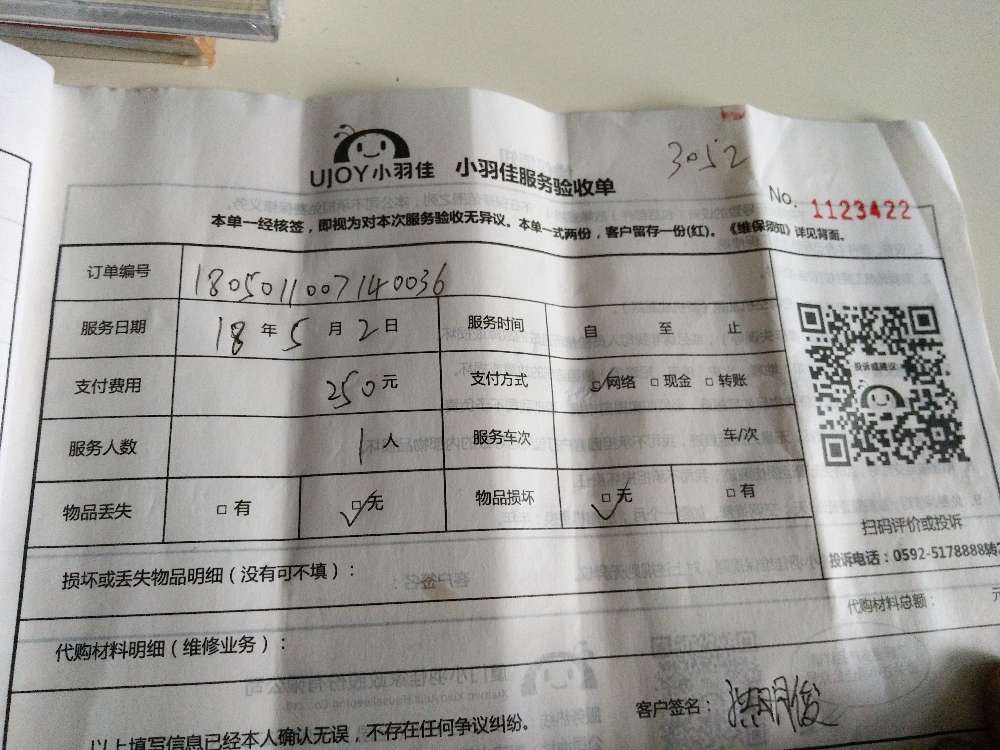 3052
UJOY小羽佳 小羽佳服务验收单
No. 1123422
本单一经核签，即视为对本次服务验收无异议。本单一式两份，客户留存一份(红)。《维保须知》详见背面。
订单编号 1805011007140036
服务日期 18年5月2日 服务时间 自 至 止
支付费用 250元 支付方式 ☑网络 □现金 □转账
投诉或建议
服务人数 1人 服务车次 车/次
物品丢失 □有 ☑无 物品损坏 ☑无 □有
扫码评价或投诉
投诉电话：0592-5178888转
损坏或丢失物品明细（没有可不填）：
代购材料总额： 元
代购材料明细（维修业务）：
客户签名：
以上填写信息已经本人确认无误，不存在任何争议纠纷。